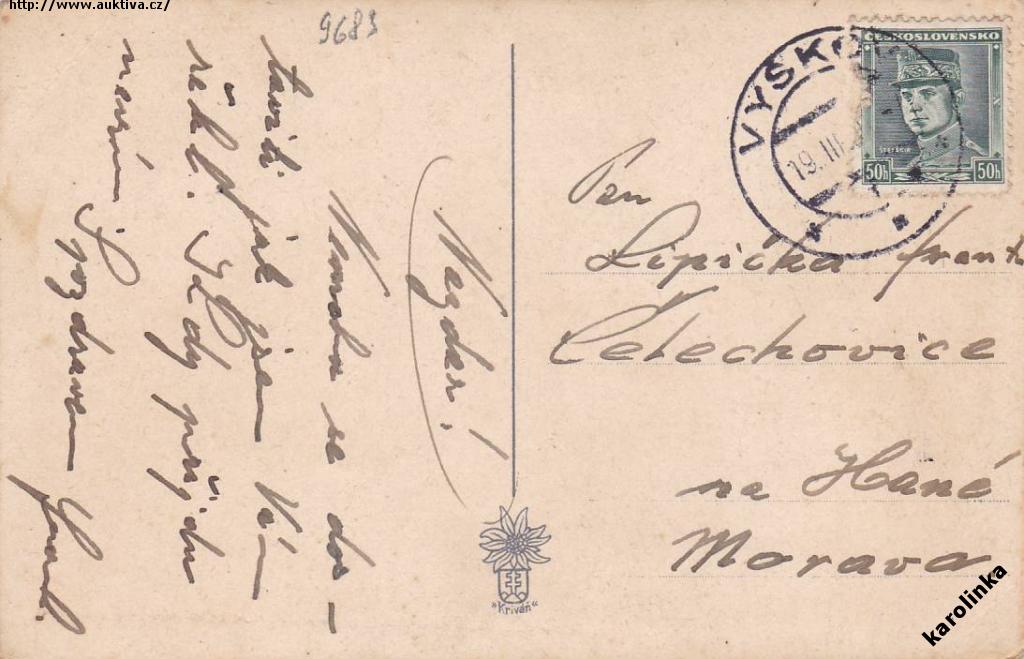 http://www.auktiva.cz/
9683
Nazdar!
Nemohu se dos-
tavit. jak jsem Vám
řekl. Kdy přijdu
nevím. S pozdravem
ČESKOSLOVENSKO
ŠTEFÁNIK
50h 50h
VYŠKOV
19. III.
Pan
Lipička Frant.
Čelechovice
na Hané
Morava
"Kriváň"
karolinka